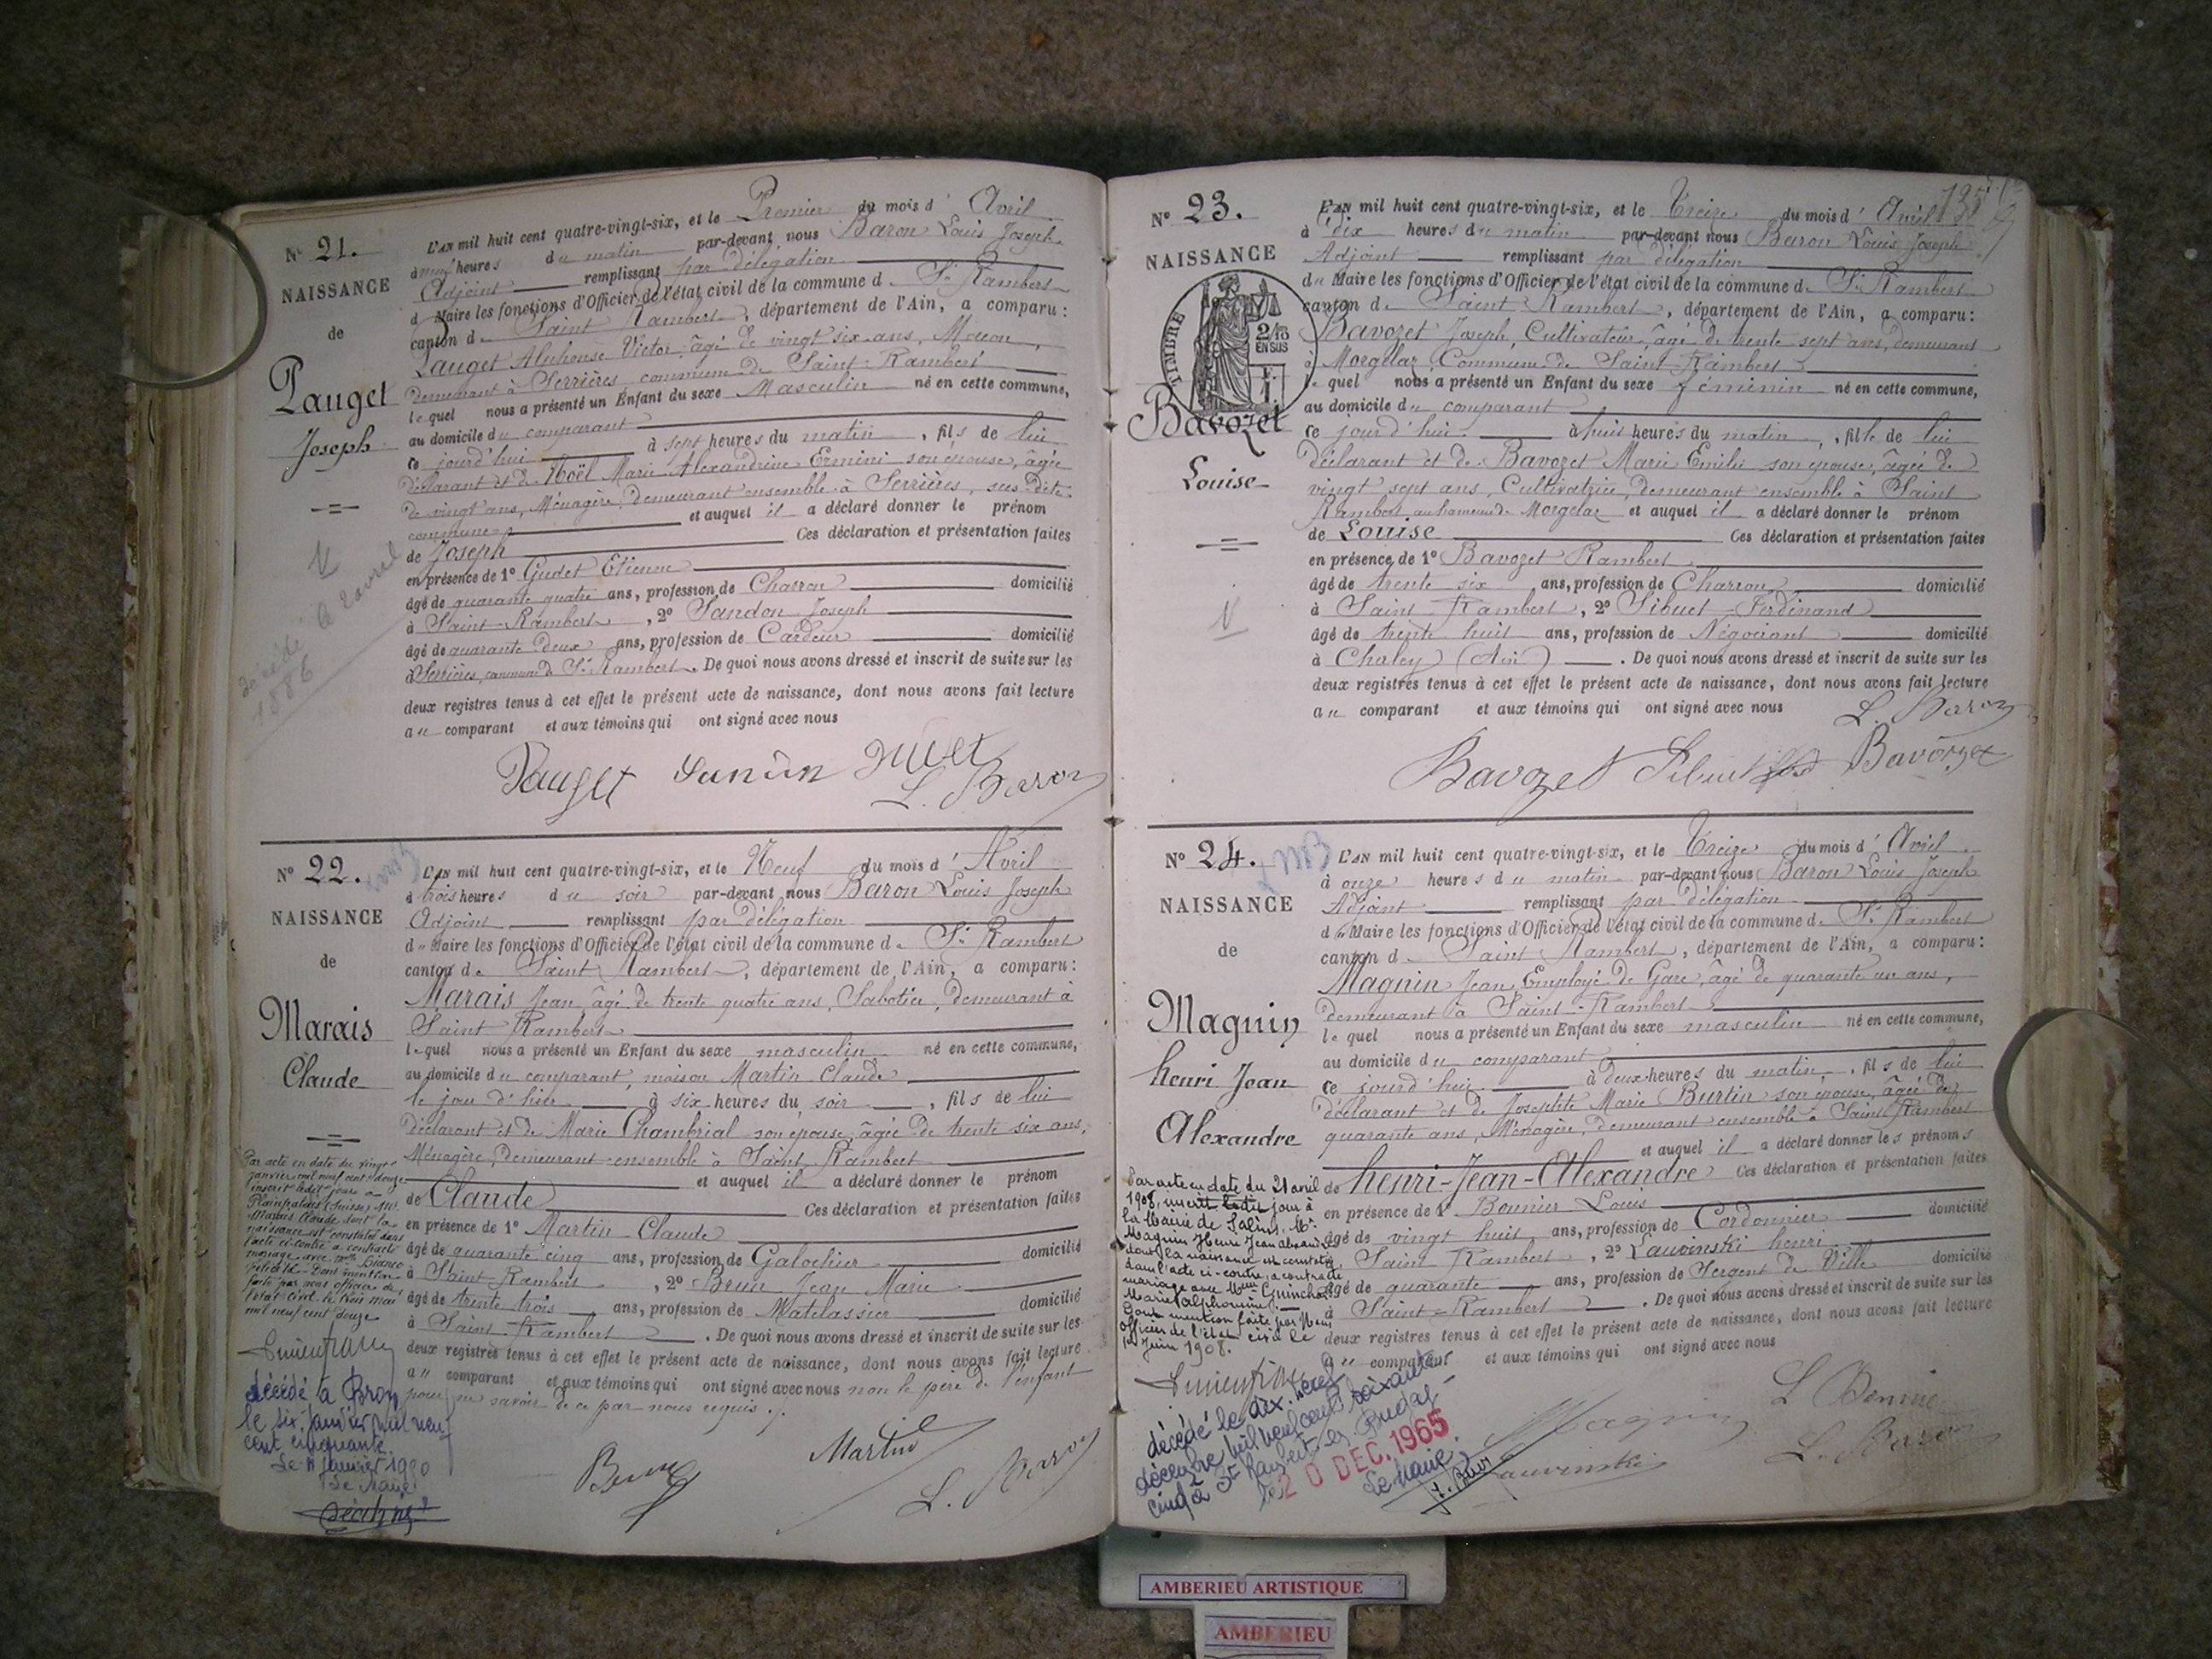 N° 21.
NAISSANCE
de
Pauget
Joseph
décédé le 2 avril
1886
L'AN mil huit cent quatre-vingt-six, et le Premier du mois d'Avril
à neuf heures du matin par-devant nous Baron Louis Joseph
Adjoint remplissant par délégation
d Maire les fonctions d'Officier de l'état civil de la commune de St Rambert
canton de Saint Rambert, département de l'Ain, a comparu :
Pauget Alphonse Victor, âgé de vingt six ans, Maçon,
demeurant à Serrières commune de Saint-Rambert
lequel nous a présenté un Enfant du sexe Masculin né en cette commune,
au domicile du comparant
ce jourd'hui à sept heures du matin, fils de lui
déclarant et de Noël Marie Alexandrine Ermini son épouse, âgée
de vingt ans, Ménagère, demeurant ensemble à Serrières, sus dite
commune et auquel il a déclaré donner le prénom
de Joseph Ces déclaration et présentation faites
en présence de 1° Gudet Etienne
âgé de quarante quatre ans, profession de Charron domicilié
à Saint-Rambert, 2° Sandon Joseph
âgé de quarante deux ans, profession de Cardeur domicilié
à Serrières, commune de St Rambert. De quoi nous avons dressé et inscrit de suite sur les
deux registres tenus à cet effet le présent acte de naissance, dont nous avons fait lecture
au comparant et aux témoins qui ont signé avec nous
Pauget
L. Baron
N° 22.
NAISSANCE
de
Marais
Claude
L'AN mil huit cent quatre-vingt-six, et le Neuf du mois d'Avril
à trois heures du soir par-devant nous Baron Louis Joseph
Adjoint remplissant par délégation
du Maire les fonctions d'Officier de l'état civil de la commune de St Rambert
canton de Saint Rambert, département de l'Ain, a comparu :
Marais Jean, âgé de trente quatre ans, Sabotier, demeurant à
Saint Rambert
lequel nous a présenté un Enfant du sexe masculin né en cette commune,
au domicile du comparant, maison Martin Claude
le jour d'hier à six heures du soir, fils de lui
déclarant et de Marie Chambrial son épouse, âgée de trente six ans,
Ménagère, demeurant ensemble à Saint Rambert
et auquel il a déclaré donner le prénom
de Claude Ces déclaration et présentation faites
en présence de 1° Martin Claude
âgé de quarante cinq ans, profession de Galochier domicilié
à Saint-Rambert, 2° Brun Jean Marie
âgé de trente trois ans, profession de Matelassier domicilié
à Saint Rambert. De quoi nous avons dressé et inscrit de suite sur les
deux registres tenus à cet effet le présent acte de naissance, dont nous avons fait lecture
au comparant et aux témoins qui ont signé avec nous non le père de l'enfant
pour ne savoir de ce par nous requis.
Martin
L. Baron
Par acte en date du vingt
janvier mil neuf cent douze
inscrit ledit jour à
Plainpalais (Suisse) Mr.
Marais Claude dont la
naissance est constatée dans
l'acte ci-contre a contracté
mariage avec Mlle Bianco
Dont mention
faite par nous officier de
l'état civil le trois mai
mil neuf cent douze
décédé à Bron
le six janvier mil neuf
cent cinquante
Le Maire
N° 23.
NAISSANCE
TIMBRE
2/10
EN SUS
Bavozet
Louise
L'AN mil huit cent quatre-vingt-six, et le Treize du mois d'Avril
à dix heures du matin par-devant nous Baron Louis Joseph
Adjoint remplissant par délégation
du Maire les fonctions d'Officier de l'état civil de la commune de St Rambert
canton de Saint Rambert, département de l'Ain, a comparu :
Bavozet Joseph, Cultivateur, âgé de trente sept ans, demeurant
à Morgelaz, Commune de Saint Rambert
lequel nous a présenté un Enfant du sexe féminin né en cette commune,
au domicile du comparant
ce jourd'hui à huit heures du matin, fille de lui
déclarant et de Bavozet Marie Emilie son épouse, âgée de
vingt sept ans, Cultivatrice, demeurant ensemble à Saint
Rambert, au hameau de Morgelaz et auquel il a déclaré donner le prénom
de Louise Ces déclaration et présentation faites
en présence de 1° Bavozet Rambert
âgé de trente six ans, profession de Charron domicilié
à Saint Rambert, 2° Sibuet Ferdinand
âgé de trente huit ans, profession de Négociant domicilié
à Chaley (Ain). De quoi nous avons dressé et inscrit de suite sur les
deux registres tenus à cet effet le présent acte de naissance, dont nous avons fait lecture
au comparant et aux témoins qui ont signé avec nous
L. Baron
Bavozet Sibuet Bavozet
N° 24.
NAISSANCE
de
Magnin
henri Jean
Alexandre
L'AN mil huit cent quatre-vingt-six, et le Treize du mois d'Avril
à onze heures du matin par-devant nous Baron Louis Joseph
Adjoint remplissant par délégation
du Maire les fonctions d'Officier de l'état civil de la commune de St Rambert
canton d Saint Rambert, département de l'Ain, a comparu :
Magnin Jean, Employé de Gare, âgé de quarante un ans,
demeurant à Saint-Rambert
lequel nous a présenté un Enfant du sexe masculin né en cette commune,
au domicile du comparant
ce jourd'hui à deux heures du matin, fils de lui
déclarant et de Josephte Marie Burtin son épouse, âgée de
quarante ans, Ménagère, demeurant ensemble à Saint Rambert
et auquel il a déclaré donner les prénoms
de henri-Jean-Alexandre Ces déclaration et présentation faites
en présence de 1° Bounier Louis
âgé de vingt huit ans, profession de Cordonnier domicilié
à Saint Rambert, 2° Lauvinski henri
âgé de quarante ans, profession de Sergent de Ville domicilié
à Saint-Rambert. De quoi nous avons dressé et inscrit de suite sur les
deux registres tenus à cet effet le présent acte de naissance, dont nous avons fait lecture
au comparant et aux témoins qui ont signé avec nous
Magnin
L. Baron
Par acte en date du 21 avril
1908, inscrit ledit jour à
la Mairie de Salins, Mr.
Magnin Henri Jean Alexandre
dont la naissance est constatée
dans l'acte ci-contre, a contracté
mariage avec Mlle
Marie Alphonsine.
Dont mention faite par Nous
officier de l'état civil le
Juin 1908.
décédé le dix neuf
décembre mil neuf cent soixante
cinq à St Rambert en Bugey
le 20 DEC. 1965
Le Maire
AMBERIEU ARTISTIQUE
AMBERIEU